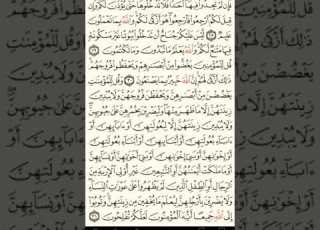 فَإِن لَّمْ تَجِدُوا۟ فِيهَآ أَحَدًا فَلَا تَدْخُلُوهَا حَتَّىٰ يُؤْذَنَ لَكُمْ ۖ وَإِن
قِيلَ لَكُمُ ٱرْجِعُوا۟ فَٱرْجِعُوا۟ ۖ هُوَ أَزْكَىٰ لَكُمْ ۚ وَٱللَّهُ بِمَا تَعْمَلُونَ
عَلِيمٌ ٢٨ لَّيْسَ عَلَيْكُمْ جُنَاحٌ أَن تَدْخُلُوا۟ بُيُوتًا غَيْرَ مَسْكُونَةٍ
فِيهَا مَتَٰعٌ لَّكُمْ ۚ وَٱللَّهُ يَعْلَمُ مَا تُبْدُونَ وَمَا تَكْتُمُونَ ٢٩
قُل لِّلْمُؤْمِنِينَ يَغُضُّوا۟ مِنْ أَبْصَٰرِهِمْ وَيَحْفَظُوا۟ فُرُوجَهُمْ ۚ
ذَٰلِكَ أَزْكَىٰ لَهُمْ ۗ إِنَّ ٱللَّهَ خَبِيرٌۢ بِمَا يَصْنَعُونَ ٣٠ وَقُل لِّلْمُؤْمِنَٰتِ
يَغْضُضْنَ مِنْ أَبْصَٰرِهِنَّ وَيَحْفَظْنَ فُرُوجَهُنَّ وَلَا يُبْدِينَ
زِينَتَهُنَّ إِلَّا مَا ظَهَرَ مِنْهَا ۖ وَلْيَضْرِبْنَ بِخُمُرِهِنَّ عَلَىٰ جُيُوبِهِنَّ ۖ
وَلَا يُبْدِينَ زِينَتَهُنَّ إِلَّا لِبُعُولَتِهِنَّ أَوْ ءَابَآئِهِنَّ أَوْ
ءَابَآءِ بُعُولَتِهِنَّ أَوْ أَبْنَآئِهِنَّ أَوْ أَبْنَآءِ بُعُولَتِهِنَّ
أَوْ إِخْوَٰنِهِنَّ أَوْ بَنِىٓ إِخْوَٰنِهِنَّ أَوْ بَنِىٓ أَخَوَٰتِهِنَّ أَوْ نِسَآئِهِنَّ
أَوْ مَا مَلَكَتْ أَيْمَٰنُهُنَّ أَوِ ٱلتَّٰبِعِينَ غَيْرِ أُو۟لِى ٱلْإِرْبَةِ مِنَ
ٱلرِّجَالِ أَوِ ٱلطِّفْلِ ٱلَّذِينَ لَمْ يَظْهَرُوا۟ عَلَىٰ عَوْرَٰتِ ٱلنِّسَآءِ ۖ
وَلَا يَضْرِبْنَ بِأَرْجُلِهِنَّ لِيُعْلَمَ مَا يُخْفِينَ مِن زِينَتِهِنَّ ۚ وَتُوبُوٓا۟
إِلَى ٱللَّهِ جَمِيعًا أَيُّهَ ٱلْمُؤْمِنُونَ لَعَلَّكُمْ تُفْلِحُونَ ٣١